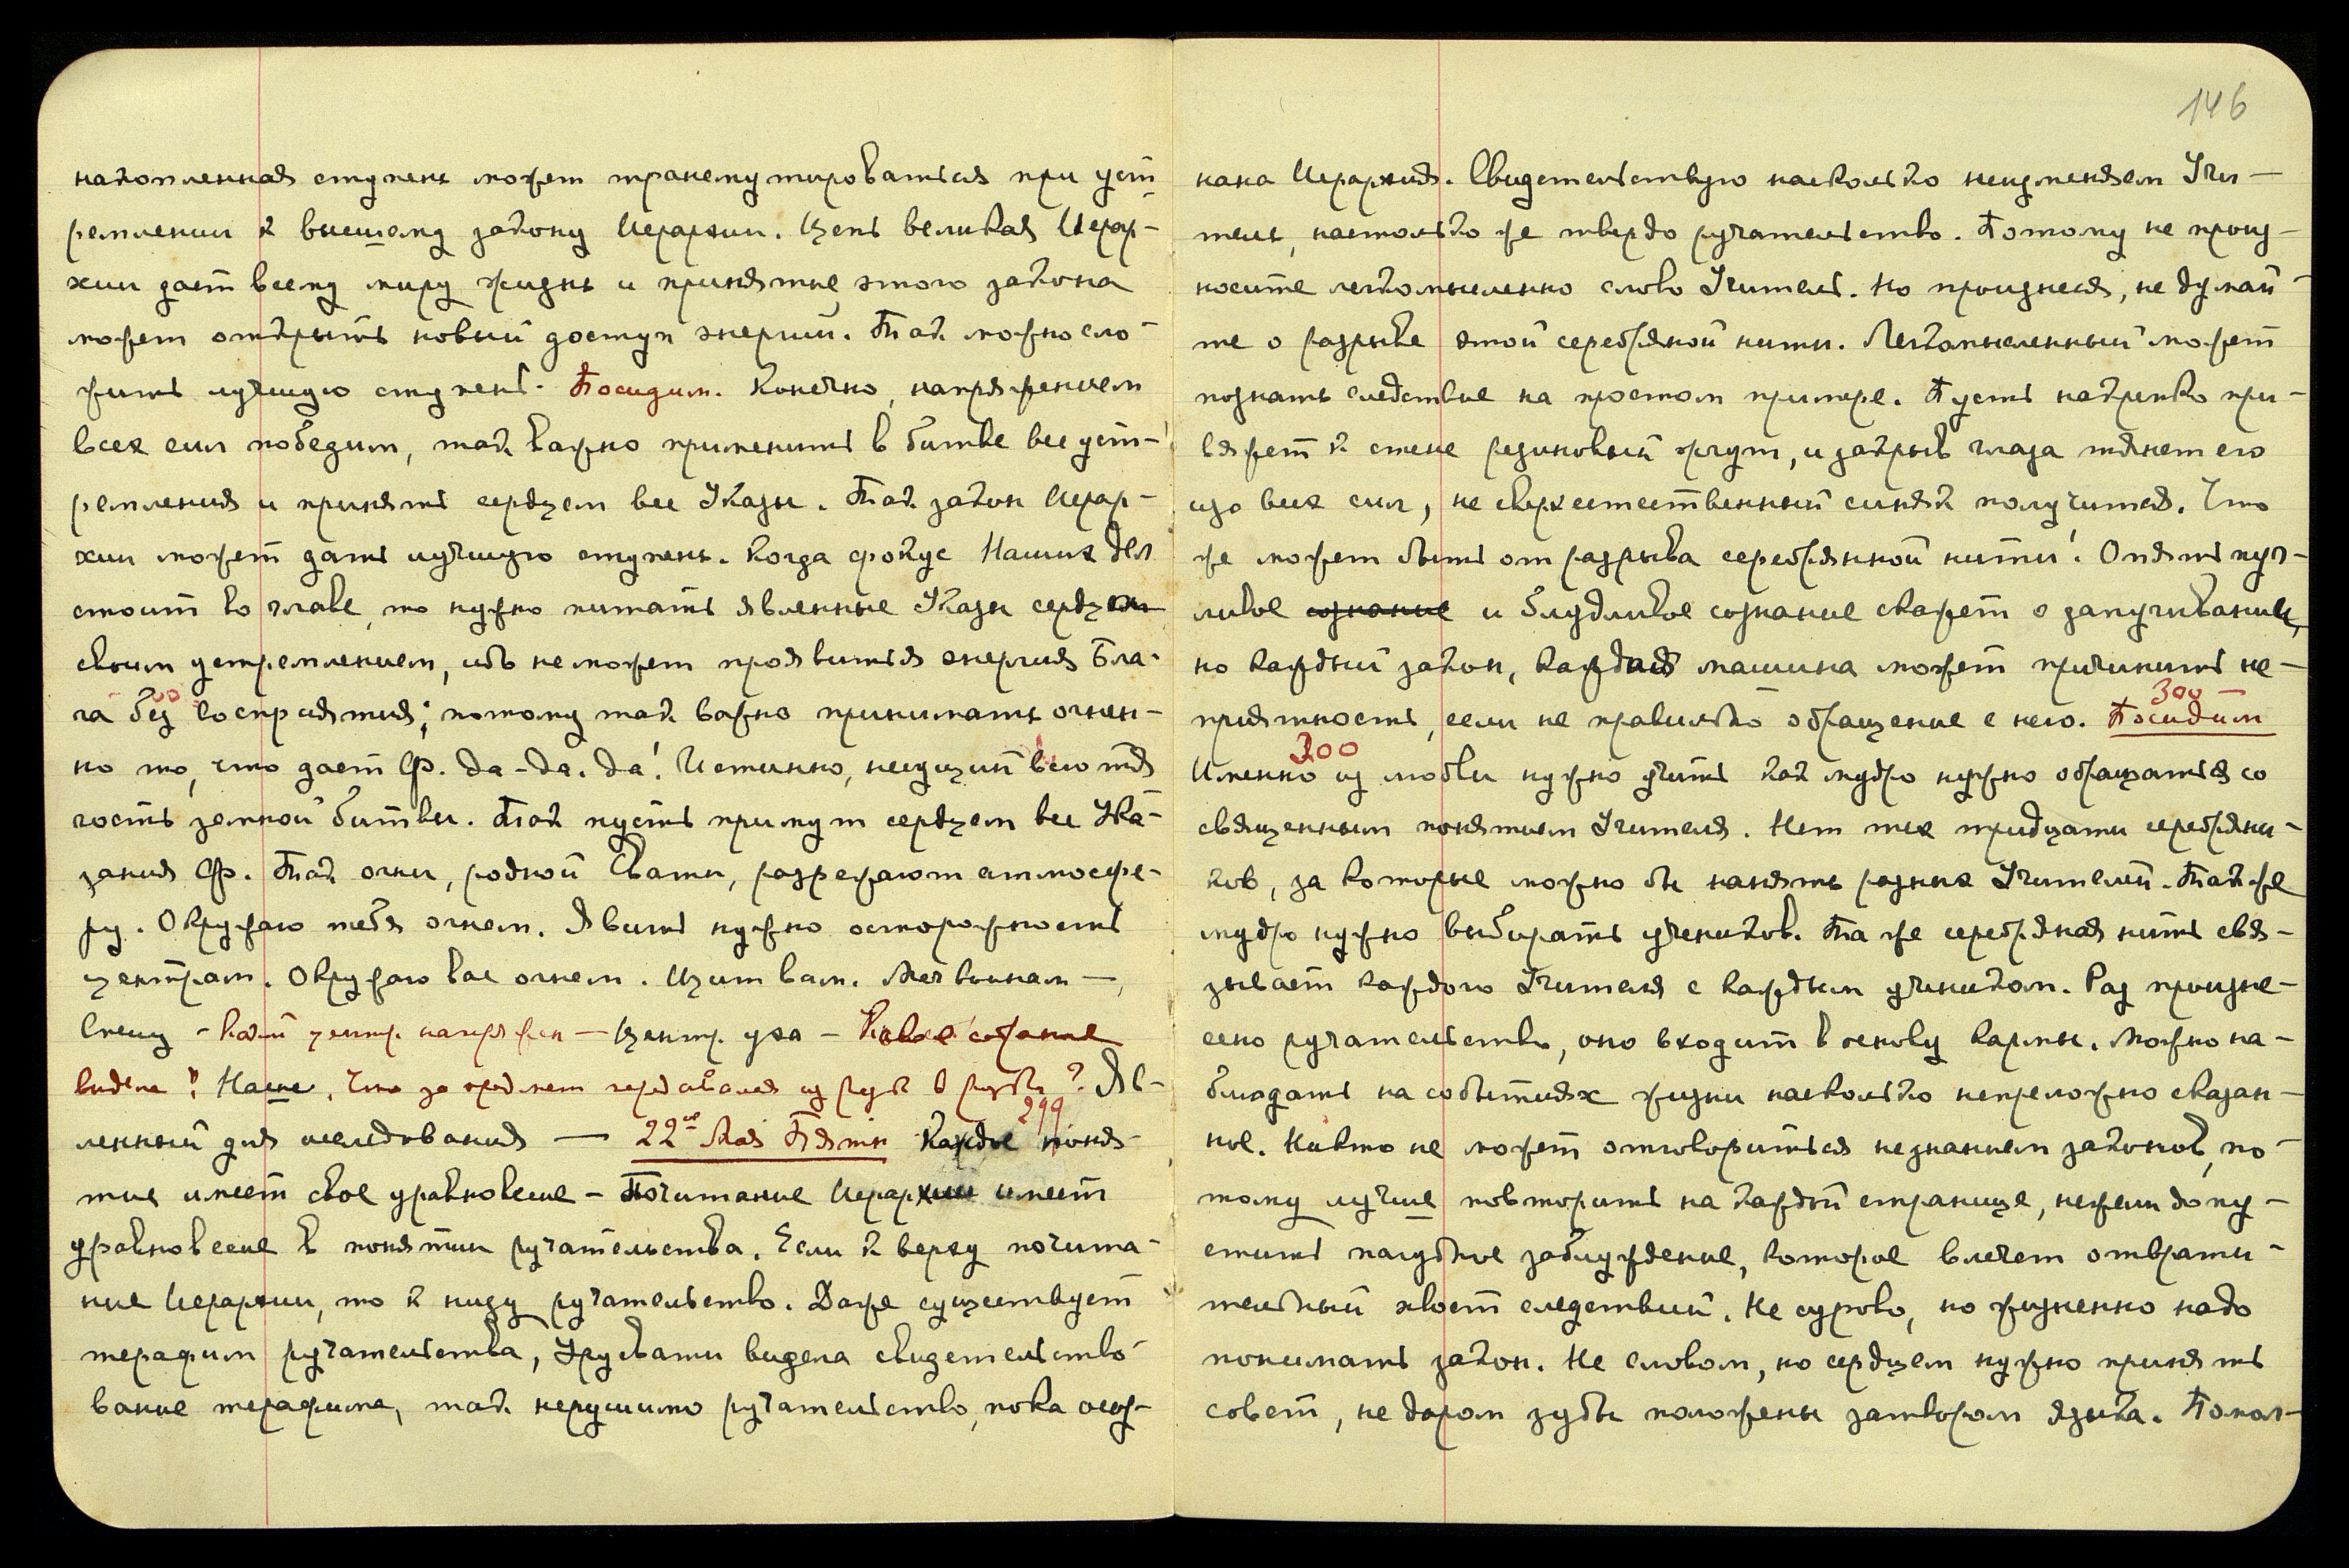 накопленная ступень может трансмутироваться при уст-
ремлении к высшему закону Иерархии. Цепь великая Иерар-
хии дает всему миру жизнь и принятие этого закона
может открыть новый доступ энергий. Так можно сло-
жить лучшую ступень. Посидим. Конечно, напряжением
всех сил победим, так важно применить в битве все уст-
ремления и принять сердцем все Указы. Так закон Иерар-
хии может дать лучшую ступень. Когда фокус Наших дел
стоит во главе, то нужно питать явленные Указы сердцем
своим устремлением, ибо не может проявиться энергия Бла-
га без восприятия; потому так важно принимать огнен-
но то, что дает Ф. Да-да-да! Истинно, неизжит всю тя-
гость земной битвы. Так пусть примут сердцем все Ука-
зания Ф. Так огни, родной Свати, разрежают атмосфе-
ру. Окружаю тебя огнем. Явить нужно осторожность
центрам. Окружаю вас огнем. Щит вам. Меч воинам —
Спешу - Какой центр напряжен — Центр уха -
видела? Наше. Что за предмет передавался из рук в руки? Яв-
ленный для исследования — 22ое Мая Пятн 299 Каждое поня-
тие имеет свое уравновесие - Почитание Иерархии имеет
уравновесие в понятии ручательства. Если к верху почита-
ние Иерархии, то к низу ручательство. Даже существует
терафим ручательства, Урусвати видела свидетельство-
вание терафима, так нерушимо ручательство, пока осоз-
146
нана Иерархия. Свидетельствую насколько неизменяем Учи-
тель, настолько же твердо ручательство. Потому не произ-
носите легкомысленно слово Учитель. Но произнеся, не думай-
те о разрыве этой серебряной нити. Легкомысленный может
познать следствие на простом примере. Пусть накрепко при-
вяжет к стене резиновый жгут, и закрыв глаза тянет его
изо всех сил, не сверхестественный синяк получится. Что
же может быть от разрыва серебрянной нити! Опять пуг-
ливое сознание и блудливое сознание скажет о запугивании,
но каждый закон, каждая машина может причинить не-
приятность, если не правильно обращение с него. 300 Посидим
300 Именно из любви нужно учить как мудро нужно обращаться со
священным понятием Учителя. Нет тех тридцати серебряни-
ков, за которые можно бы нанять разных Учителей. Так же
мудро нужно выбирать учеников. Та же серебряная нить свя-
зывает каждого Учителя с каждым учеником. Раз произне-
сено ручательство, оно входит в основу кармы. Можно на-
блюдать на событиях жизни насколько непреложно сказан-
ное. Никто не может отговориться незнанием законов, по-
тому лучше повторить на каждой странице, нежели допу-
стить пагубное заблуждение, которое влечет отврати-
тельный хвост следствий. Не сурово, но жизненно надо
понимать закон. Не словом, но сердцем нужно принять
совет, не даром зубы положены затвором языка. Помол-